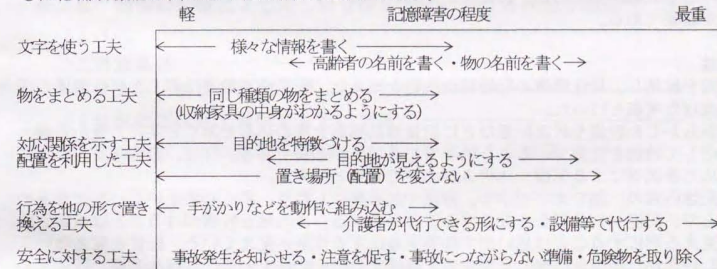 軽 記憶障害の程度 最重
文字を使う工夫 様々な情報を書く
高齢者の名前を書く・物の名前を書く
物をまとめる工夫 同じ種類の物をまとめる
(収納家具の中身がわかるようにする)
対応関係を示す工夫 目的地を特徴づける
配置を利用した工夫 目的地が見えるようにする
置き場所(配置)を変えない
行為を他の形で置き 手がかりなどを動作に組み込む
換える工夫 介護者が代行できる形にする・設備等で代行する
安全に対する工夫 事故発生を知らせる・注意を促す・事故につながらない準備・危険物を取り除く